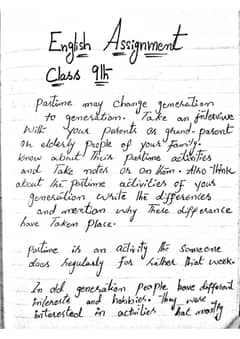 English Assignment
Class 9th
Pastime may change generation
to generation. Take an interview
With your parents or grand-parent
or elderly people of your family.
know about their pastime activities
and Take notes or on them. Also think
about the pastime activities of your
generation write the differences
and mention why There differance
have Taken place.
Pastime is an activity the someone
does regularly for rather that week.
In old generation people have different
interests and hobbies. They were
interested in activities that mostly